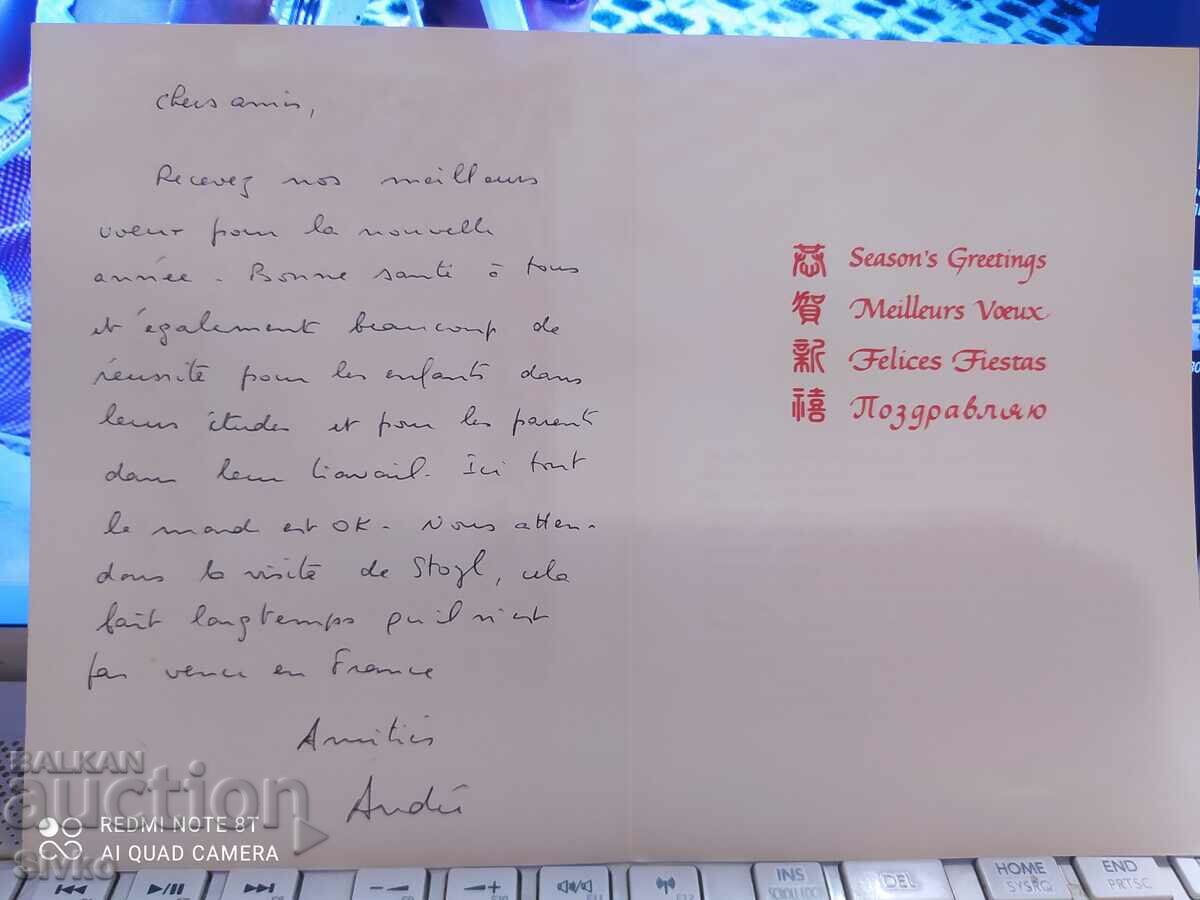 Chers amis,
Recevez nos meilleurs
voeux pour la nouvelle
année. Bonne santé à tous
et également beaucoup de
réussite pour les enfants dans
leurs études et pour les parents
dans leur travail. Ici tout
le monde est OK. Nous atten-
dons la visite de Stoyl, cela
fait longtemps qu'il n'est
pas venu en France
Amitiés
André
恭 Season's Greetings
賀 Meilleurs Vœux
新 Felices Fiestas
禧 Поздравляю
BALKAN
auction
REDMI NOTE 8T
AI QUAD CAMERA
Sivko
INS
SCROLL LOCK
DEL
HOME
SYSRQ
END
PRTSC